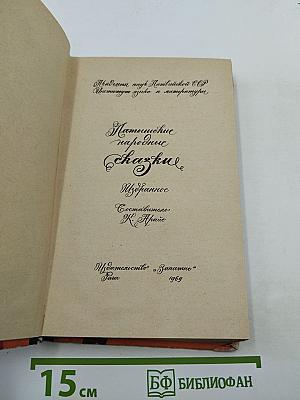 Академия наук Латвийской ССР
Институт языка и литературы
Латышские
народные
сказки
Избранное
Составитель
К. Арайс
Издательство „Зинатне“
Рига 1969
15 см
БФ БИБЛИОФАН